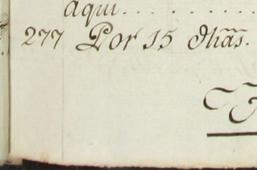 aqui. . . . . . . . .
277 Por 15 dhãs.